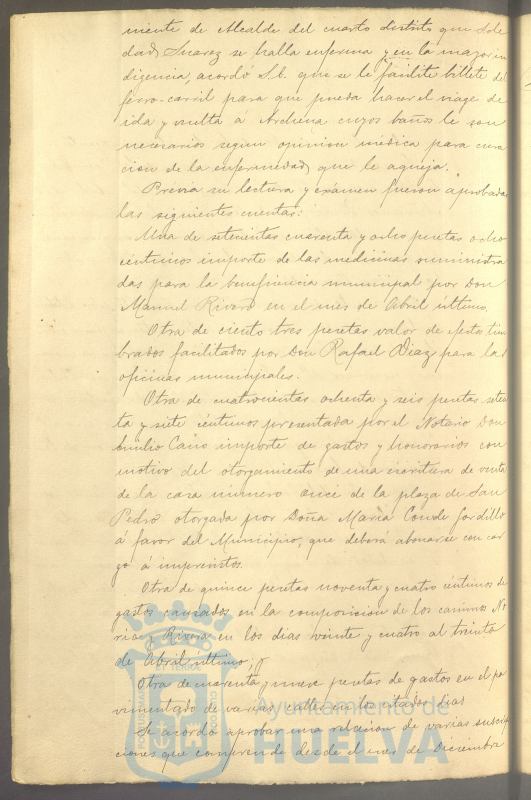 niente de Alcalde del cuarto distrito que Sole
dad Suarez se halla enferma y en la mayor in
digencia, acordó S.E. que se le facilite billete del
ferro-carril para que pueda hacer el viage de
ida y vuelta á Archena cuyos baños le son
necesarios segun opinion médica para cura
cion de la enfermedad que le aqueja.
Previa su lectura y exámen fueron aprobadas
las siguientes cuentas:
Una de setecientas cuarenta y ocho pesetas ocho
céntimos importe de las medicinas suministra
das para la beneficencia municipal por Don
Manuel Rivero en el mes de Abril último.
Otra de ciento tres pesetas valor de efectos tim
brados facilitados por Don Rafael Diaz para las
oficinas municipales.
Otra de cuatrocientas ochenta y seis pesetas seten
ta y siete céntimos presentada por el Notario Don
Emilio Cano importe de gastos y honorarios con
motivo del otorgamiento de una escritura de venta
de la casa número once de la plaza de San
Pedro otorgada por Doña María Conde Gordillo
á favor del Municipio, que deberá abonarse con car
go á imprevistos.
Otra de quince pesetas noventa y cuatro céntimos de
gastos causados en la composicion de los caminos No
ria y Rivera en los dias veinte y cuatro al treinta
de Abril último; y
Otra de cuarenta y nueve pesetas de gastos en el pa
vimentado de varias calles en los citados dias
Se acordó aprobar una relacion de varias suscrip
ciones que comprende desde el mes de Diciembre
Ayuntamiento de
HUELVA